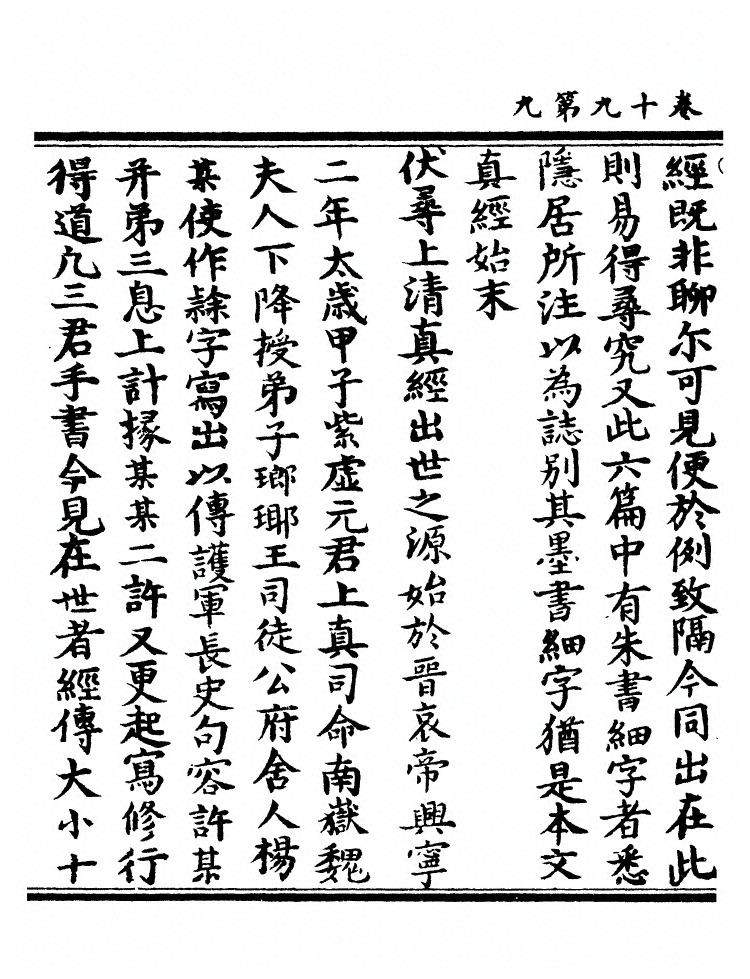 卷十九第九
經既非聊尓可見便於例致隔今同出在此
則易得尋究又此六篇中有朱書細字者悉
隱居所注以為誌別其墨書細字猶是本文
真經始末
伏尋上清真經出世之源始於晉哀帝興寧
二年太歲甲子紫虛元君上真司命南嶽魏
夫人下降授弟子瑯瑘王司徒公府舍人楊
某使作隸字寫出以傳護軍長史句容許某
并弟三息上計掾某某二許又更起寫修行
得道凡三君手書今見在世者經傳大小十